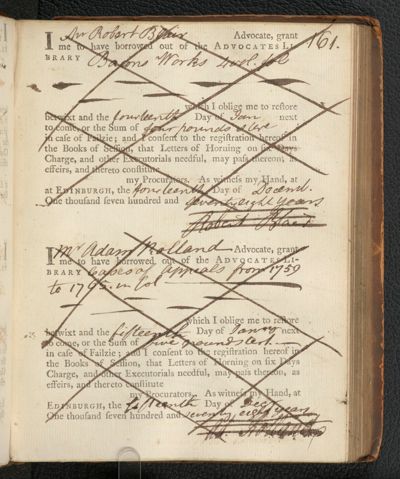 161.
I Mr Robert Blair Advocate, grant
me to have borrowed out of the ADVOCATES LI-
BRARY Bacons Works 4 vol. fol
which I oblige me to reſtore
betwixt and the fourteenth Day of Jan next
to come, or the Sum of four pounds ster
in caſe of Failzie; and I conſent to the regiſtration hereof in
the Books of Seſſion, that Letters of Horning on ſix Days
Charge, and other Executorials needful, may paſs thereon; as
effeirs, and thereto conſtitute
my Procurators. As witneſs my Hand, at
at EDINBURGH, the fourteenth Day of Decemr.
One thouſand ſeven hundred and seventy eight years
Robert Blair
I Mr Adam Rolland Advocate, grant
me to have borrowed out of the ADVOCATES LI-
BRARY Cases of Appeals from 1759
to 17 in fol
which I oblige me to reſtore
betwixt and the fifteenth Day of Janry next
to come, or the Sum of five pounds ster.
in caſe of Failzie; and I conſent to the regiſtration hereof in
the Books of Seſſion, that Letters of Horning on ſix Days
Charge, and other Executorials needful, may paſs thereon, as
effeirs, and thereto conſtitute
my Procurators. As witneſs my Hand, at
EDINBURGH, the fifteenth Day of Decr
One thouſand ſeven hundred and seventy eight years
Ad. Rolland